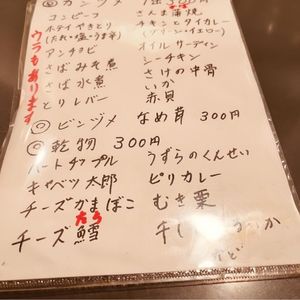 ◎カンヅメ
コンビーフ
ホテイやきとり
(たれ・塩・うま辛)
アンチョビ
さばみそ煮
さば水煮
とりレバー
さんま蒲焼
チキンとタイカレー
(グリーン・イエロー)
オイルサーディン
シーチキン
さけの中骨
いか
赤貝
ウラもあります
◎ビンヅメ なめ茸 300円
◎乾物 300円
ハートチップル
キャベツ太郎
チーズかまぼこ
たら
チーズ鱈
うずらのくんせい
ピリカレー
むき栗
など